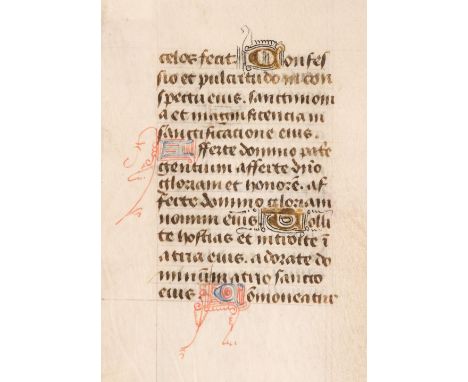 celos fecit. Confes
sio et pulcritudo in con
spectu eius. sanctimoni
a et magnificentia in
sanctificatione eius.
Afferte domino patr̄e
gentium afferte dn̄o
gloriam et honorē. af
ferte domino gloriam
nomini eius Tolli
te hostias et introite ī
atria eius. adorate do
minum ī atrio sancto
eius. Comoueatur